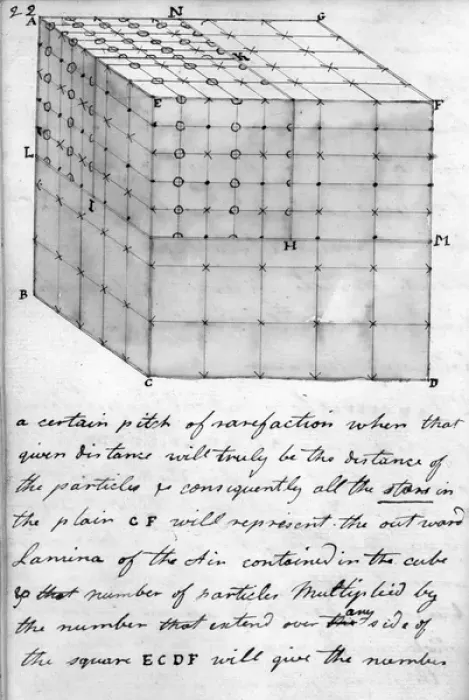 22
A N G
K
E F
L
I
H M
B
C D
a certain pitch of rarefaction when that
given distance will truly be the distance of
the particles & consequently all the stars in
the plain CF will represent the outward
Lamina of the Air contained in the cube
& that number of particles Multiplied by
any
the number that extend over the side of
the square ECDF will give the number